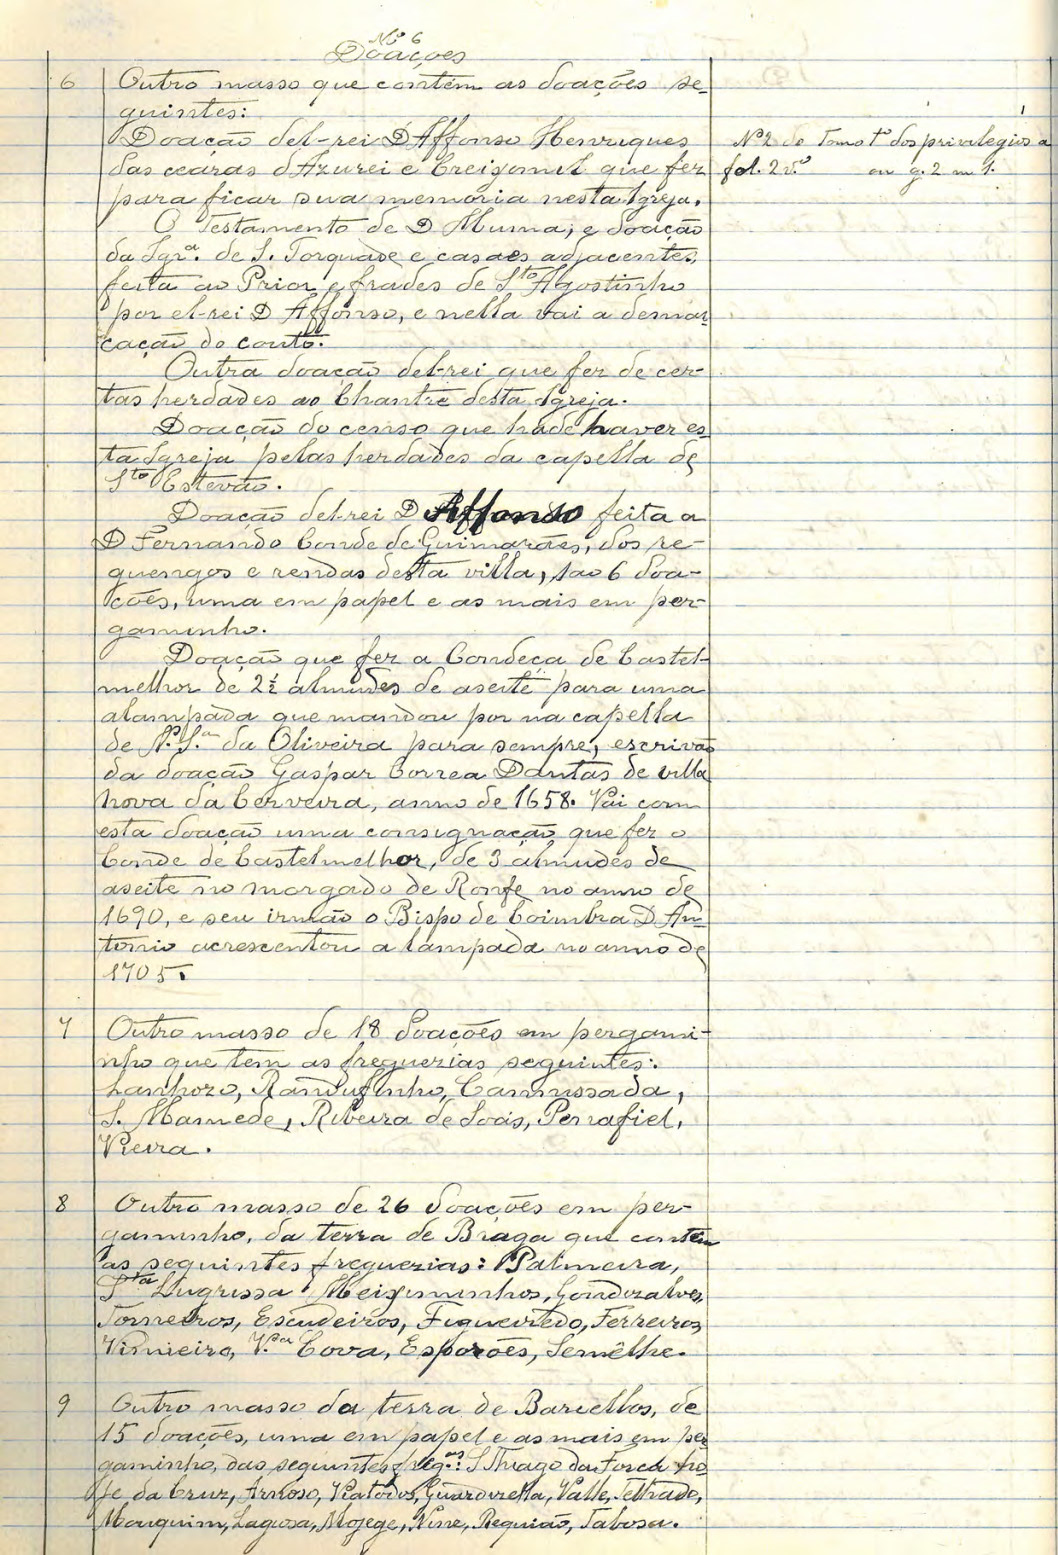 Nº 6
Doações
6 Outro masso que contém as doações se-
guintes:
Doação del-rei D Affonso Henriques
das cearas d'Azurei e Creixomil que fez
para ficar sua memoria nesta Igreja.
Nº 2 do Tomo 1º dos privilegios a
fol. 2 v.º ou g. 2 m 1.
O Testamento de D Muma, e doação
da Igrª. de S. Torquade e casaes adjacentes,
feita ao Prior e frades de Sto Agostinho
por el-rei D Affonso, e nella vai a demar-
cação do couto.
Outra doação del-rei que fez de cer-
tas herdades ao Chantre desta Igreja.
Doação do censo que hade haver es-
ta Igreja pelas herdades da capella de
Sto Estevão.
Doação del-rei D Affonso feita a
D Fernando Conde de Guimarães, dos re-
guengos e rendas desta villa, sao 6 doa-
ções, uma em papel e as mais em per-
gaminho.
Doação que fez a Condeça de Castel-
melhor de 2½ almudes de aseite para uma
alampada que mandou por na capella
de N.ª S.ª da Oliveira para sempre, escrivão
da doação Gaspar Correa Dantas de villa
nova da Cerveira, anno de 1658. Vai com
esta doação uma consignação que fez o
Conde de Castelmelhor, de 3 almudes de
aseite no morgado de Ronfe no anno de
1690, e seu irmão o Bispo de Coimbra D. An-
tonio acrescentou a lampada no anno de
1705.
7 Outro masso de 18 doações em pergami-
nho que tem as freguezias seguintes:
Lanhozo, Randufinho, Canissada,
S. Mamede, Ribeira de Soás, Penafiel,
Vieira.
8 Outro masso de 26 doações em per-
gaminho, da terra de Braga que contém
as seguintes freguezias: Palmeira,
Sta Lugrissa Meixuminhos, Gondozalves,
Torneiros, Escudeiros, Figueiredo, Ferreiros,
Vimieiro, V.ª Cova, Esporões, Semêlhe.
9 Outro masso da terra de Barcellos, de
15 doações, uma em papel e as mais em per-
gaminho, das seguintes freg.as: S Thiago da Forca ho-
je da Cruz, Arnoso, Viatodos, Guardizella, Valle, Telhade,
Mouquim, Lagosa, Mojege, Nine, Requião, Tabosa.